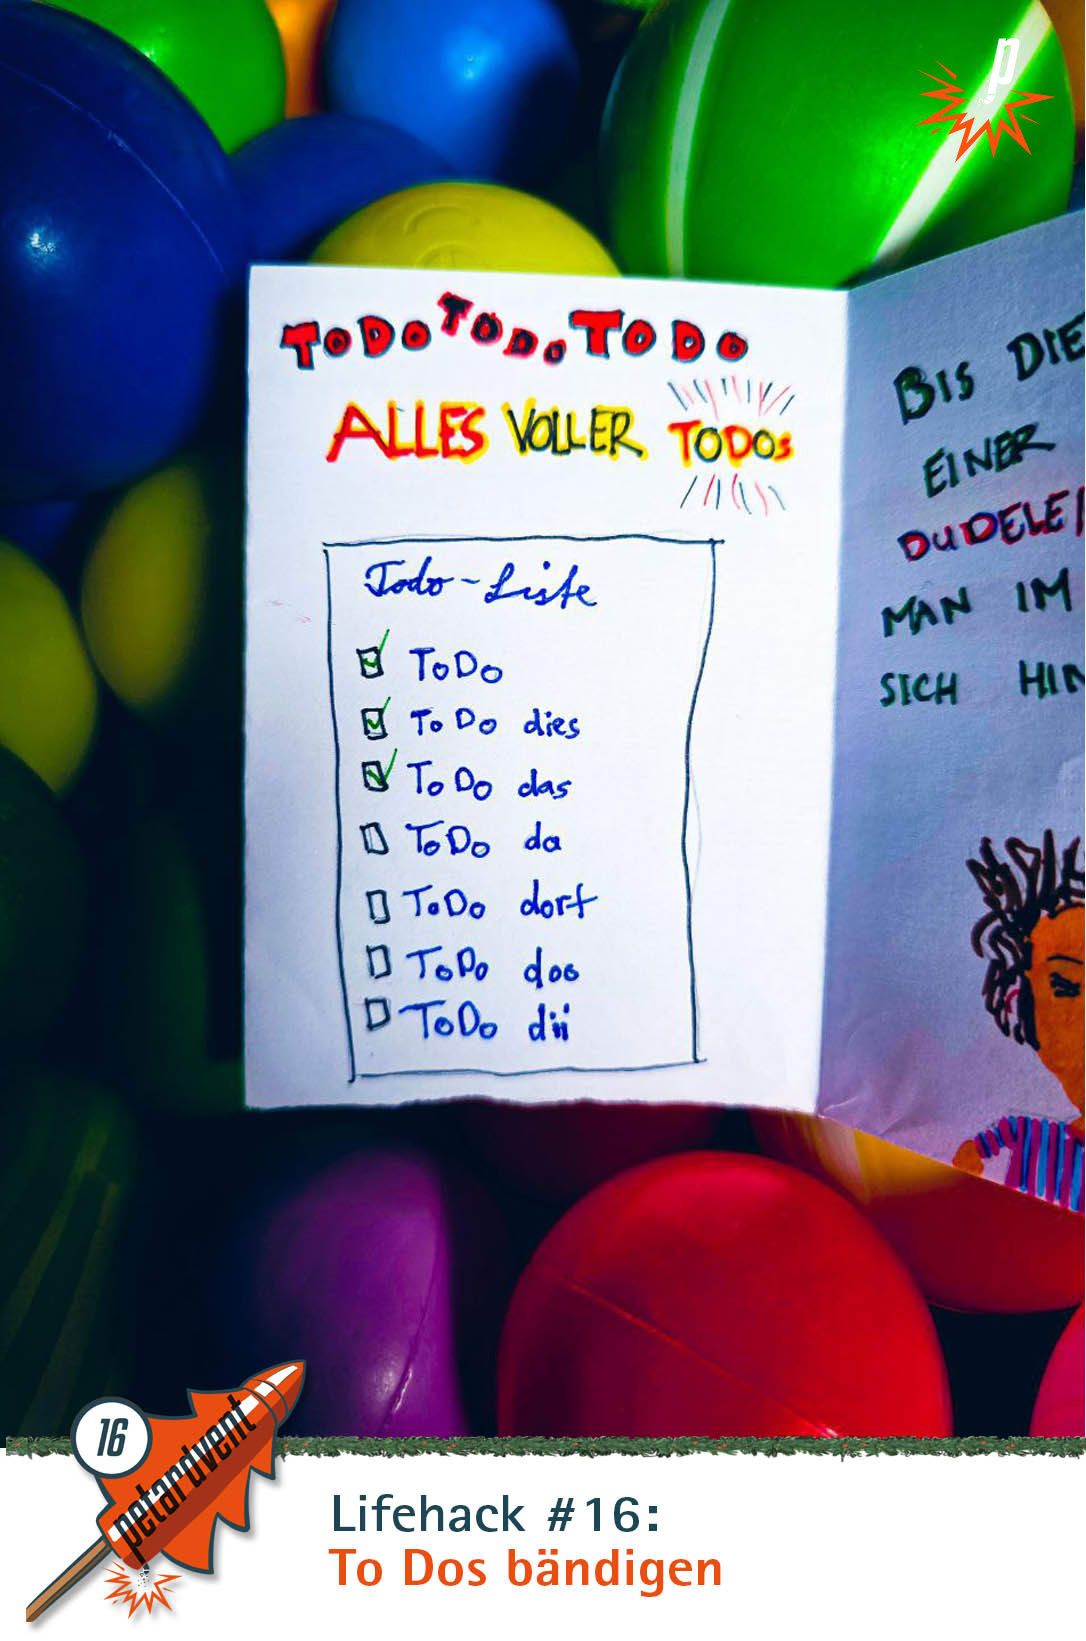 p
ToDo ToDo ToDo
ALLES VOLLER TODOs
Todo-Liste
ToDo
ToDo dies
ToDo das
ToDo da
ToDo dort
ToDo doo
ToDo dii
BIS DIE
EINER
DUDELE
MAN IM
SICH HIN
16
petardvent
Lifehack #16:
To Dos bändigen